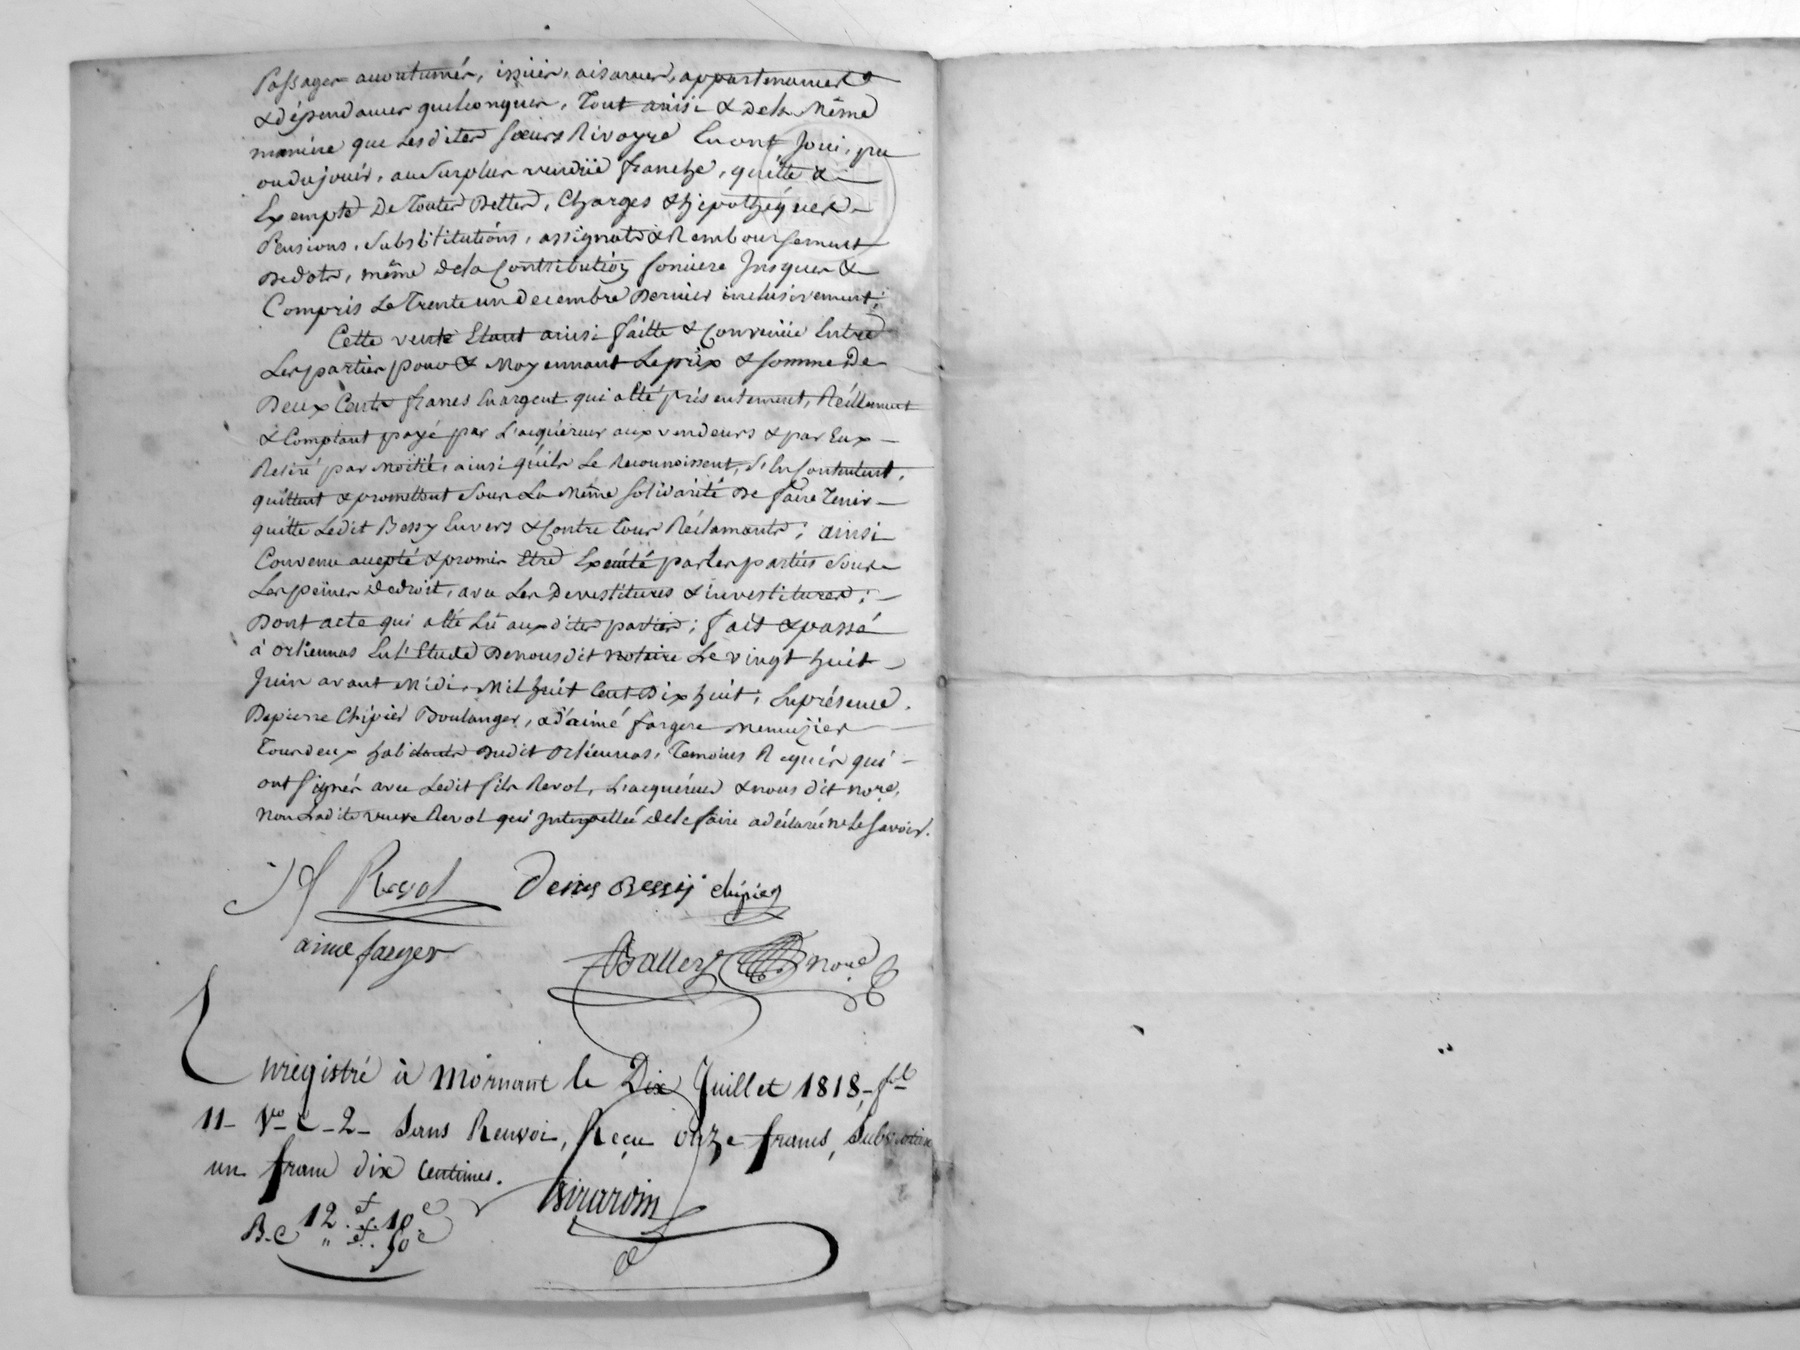 Passages accoutumés, issües, aisances, appartenances
& dépendances quelconques, Tout ainsi & de la Même
manière que Lesdites sœurs Rivoyre En ont Joui, pu
ou du jouir, au Surplus vendüe franche, quitte &
Exempte De Toutes Dettes, Charges & hipothéques
Pensions, Substitutions, assignats & Remboursement
De dots, même de la Contribution fonciere Jusques &
Compris Le Trente un decembre Dernier inclusivement;
Cette vente Etant ainsi faitte & Convenüe Entre
Les parties pour & Moyennant Le prix & somme De
Deux Cents francs En argent qui a été présentement, Réellement
& Comptant payé par L'acquéreur aux vendeurs & par Eux
Retiré par Moitié, ainsi qu'ils Le Reconnoissent, s'En Contentent,
quittent & promettent sous La Même solidarité De faire Tenir
quitte Ledit Bessy Envers & Contre Tous Réclamants; ainsi
Convenu accepté & promis Etre Exécuté par les parties sous
Les peines de droit, avec Les Devestitures & investitures;
Dont acte qui a été Lu aux dites parties; fait & passé
à Orliennas En L'Etude De nous dit notaire Le vingt huit
Juin avant Midi, Mil huit Cent Dix huit; En présence
De pierre Chipier Boulanger, & d'aimé fargere menuisier
Tous deux habitants Dudit Orliennas, Temoins Requis qui
ont signés avec Ledit fils Revol, L'acquéreur & nous dit nore,
Non Ladite veuve Revol qui Interpellée de le faire a déclaré ne Le savoir.
Revol Denis Bessy chipier
aime farger
nore
Enregistré à Mornant le Dix Juillet 1818, fol
11 Vo C 2 Sans Renvoi, Reçu onze francs, Subvention
un franc dix centimes.
Girardin
12 f. 10 c
B.C " f. 50 c